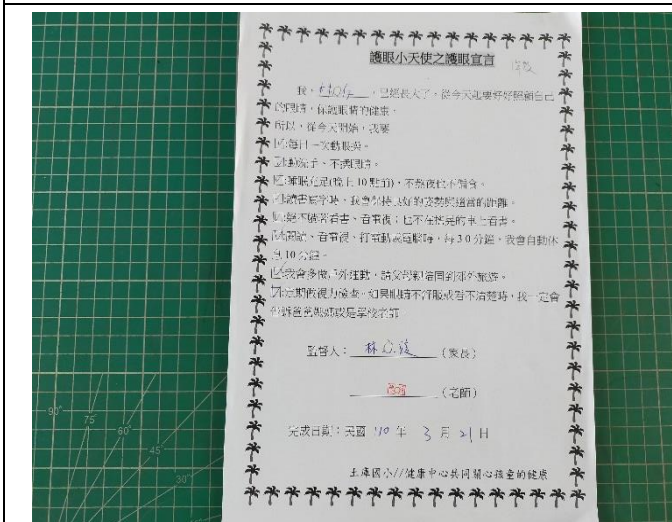 護眼小天使之護眼宣言
我，，已經長大了，從今天起要好好照顧自己
的眼睛，保護眼睛的健康。
所以，從今天開始，我要
每日一次動眼操。
勤洗手、不揉眼睛。
睡眠充足(晚上10點前)，不熬夜也不偏食。
讀書寫字時，我會保持良好的姿勢與適當的距離。
絕不躺著看書、看電視；也不在搖晃的車上看書。
閱讀、看電視、打電動或電腦時，每30分鐘，我會自動休
息10分鐘。
我會多做戶外運動，請父母親陪同到郊外旅遊。
定期做視力檢查。如果眼睛不舒服或看不清楚時，我一定會
告訴爸爸媽媽或是學校老師
監督人：林（家長）
（老師）
完成日期：民國 110 年 3 月 21 日
土庫國小//健康中心共同關心孩童的健康
90°
75
60°
45°
30°